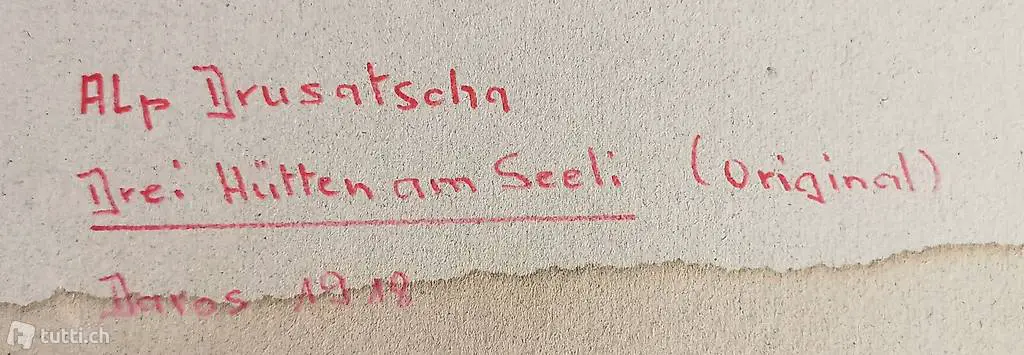 Alp Drusatscha
Drei Hütten am Seeli (Original)
Davos 1918
tutti.ch